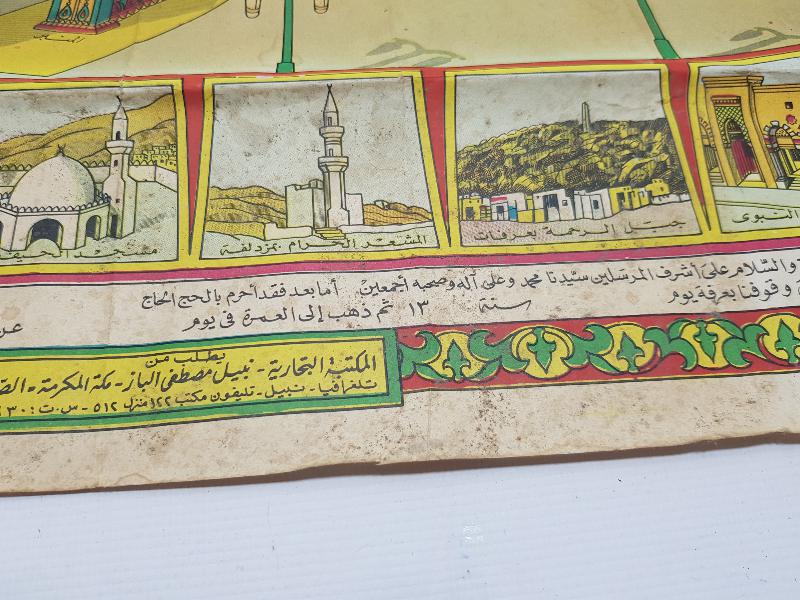 المنبر
مسجد الخيف
المشعر الحرام بمزدلفة
جبل الرحمة بعرفات
النبوى
والسّلام على أشرف المرسلين سيّدنا محمد وعلى آله وصحبه أجمعين أما بعد فقد أحرم بالحج الحاج
و وقوفنا بعرفة يوم سنة ١٣ ثم ذهب إلى العمرة فى يوم
يطلب من
المكتبة التجارية - نبيل مصطفى الباز - مكة المكرمة -
تلغرافيا - نبيل - تليفون مكتب ١٢٢ منزل ٥١٢ - س . ت : ٣٠